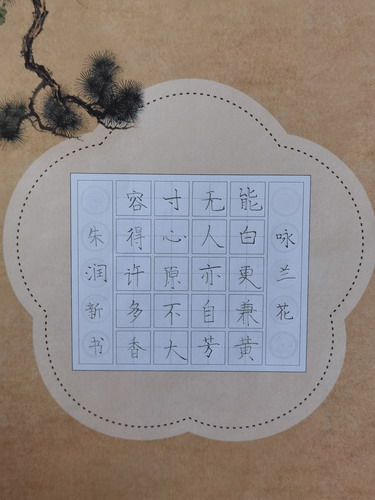 咏兰花
能白更兼黄
无人亦自芳
寸心原不大
容得许多香
朱润新书